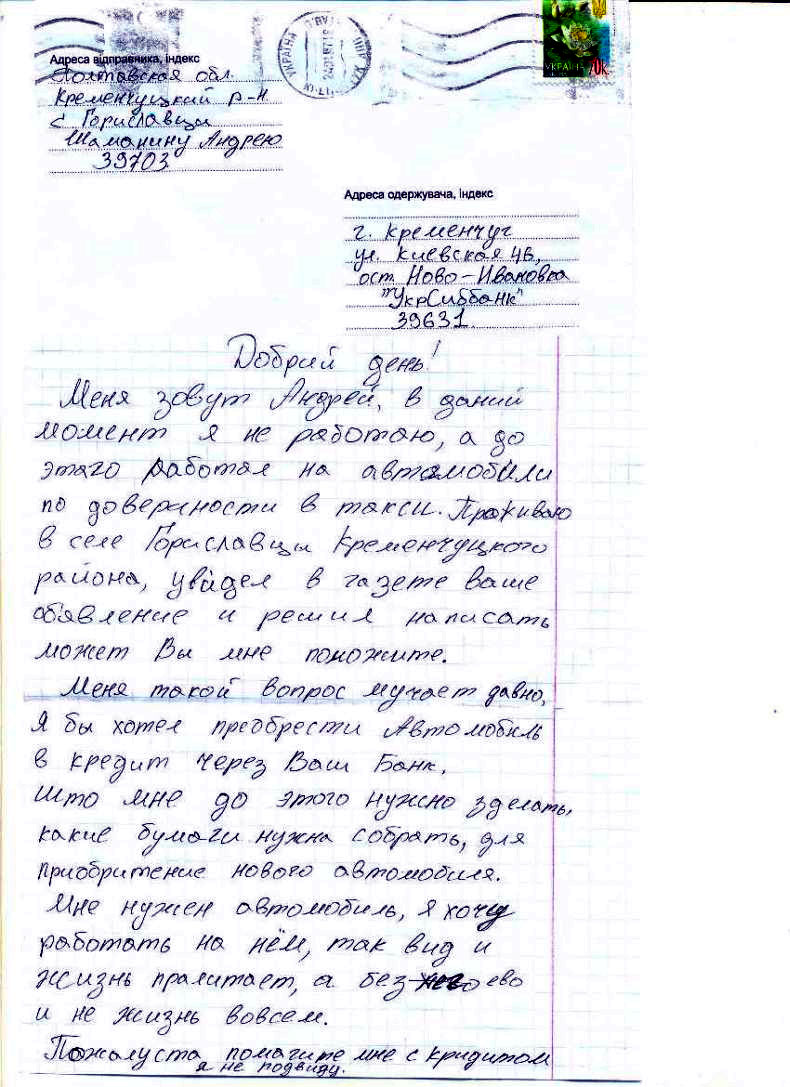 УКРАЇНА
УКРАЇНА 70К
Адреса відправника, індекс
Полтавская обл.
Кременчуцкий р-н
с Гориславцы
Шаманину Андрею
39703
Адреса одержувача, індекс
г. Кременчуг
ул. Киевская 4б,
ост Ново-Ивановка
"УкрСиббанк"
39631
Добрий день!
Меня зовут Андрей, в даний
момент я не работаю, а до
этаго работал на автамобили
по довериности в такси. Праживаю
в селе Гориславцы Кременчуцкого
района, увидел в газете ваше
обявление и решил написать
может Вы мне поможите.
Меня такой вопрос мучает давно,
Я бы хотел преобрести Автомобиль
в кредит через Ваш Банк.
што мне до этого нужно зделать,
какие бумаги нужна собрать, для
приобритение нового автомобиля.
Мне нужен автомобиль, я хочу
работать на нём, так вид и
жизнь пралитает, а без ево
и не жизнь вовсем.
Пожалуста помагите мне с кридитом
я не подвиду.